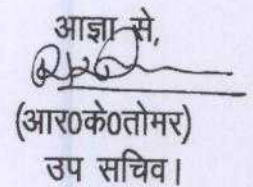 आज्ञा से,
(आर0के0तोमर)
उप सचिव।